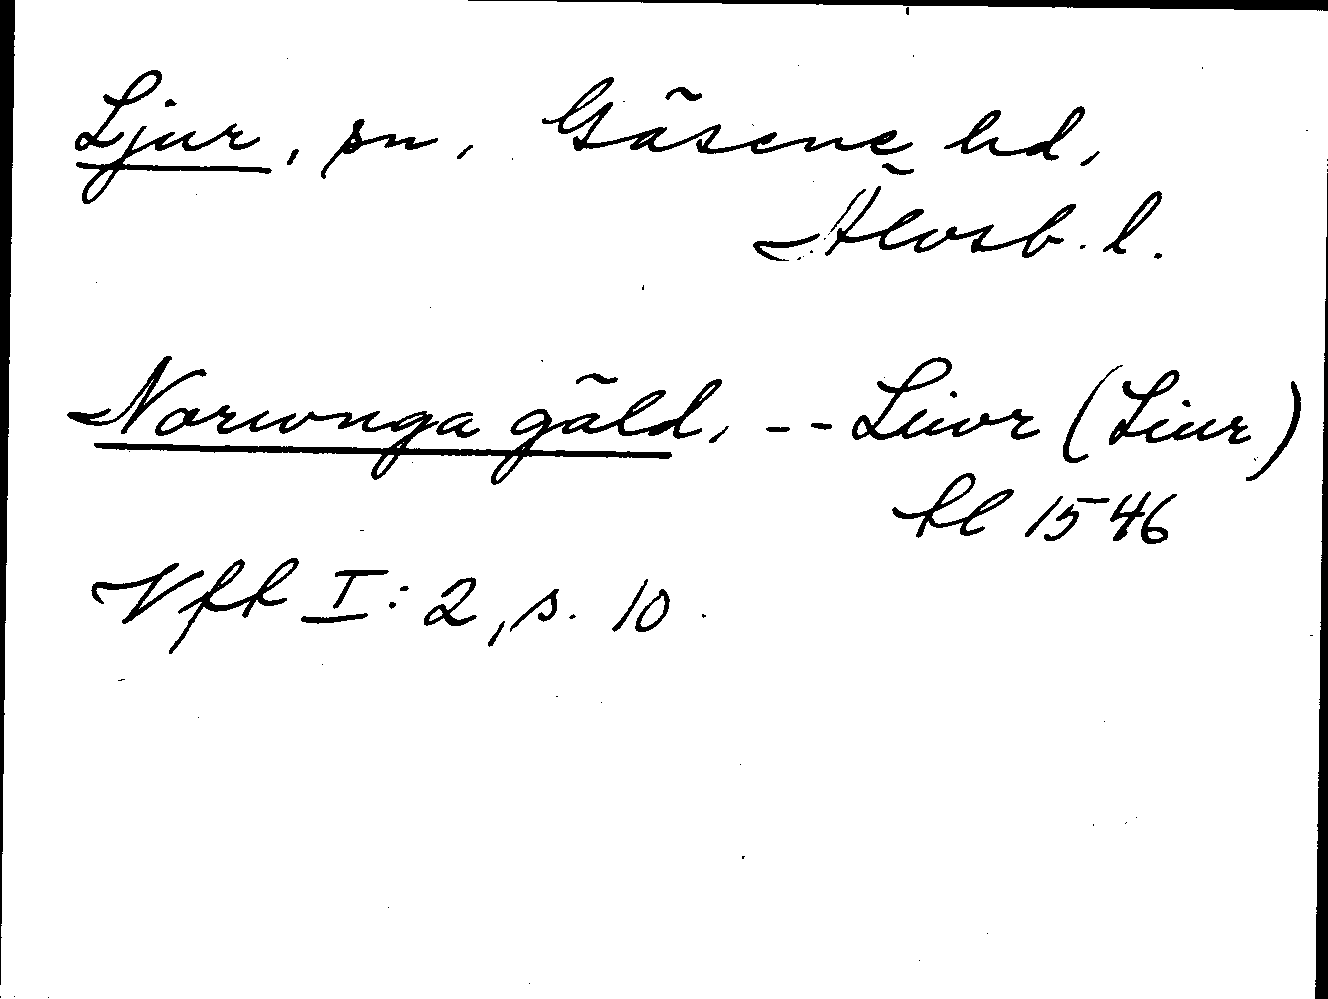 Ljur, sn, Gäsene hd,
Älvsb. l.
Norunga gäld, -- Liwr (Liur)
kl 1546
Vfk I:2, s. 10.